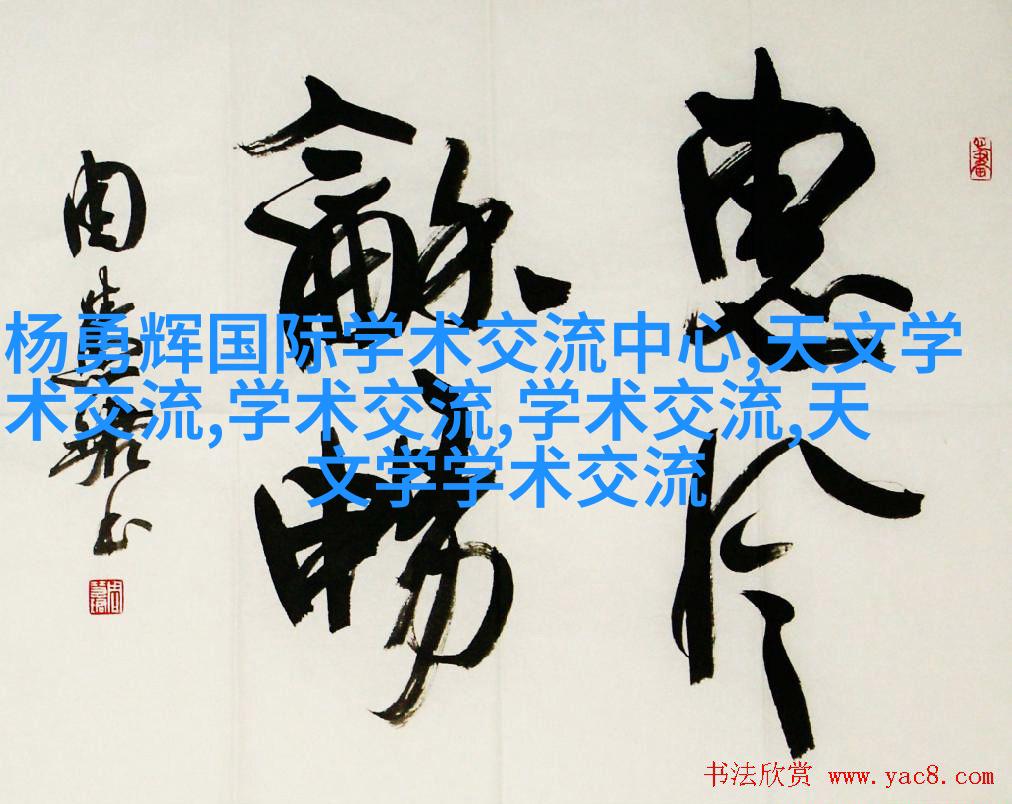 惠风
龢畅
周慧珺书
杨勇辉国际学术交流中心,天文学
术交流,学术交流,学术交流,天
文学学术交流
书法欣赏 www.yac8.com